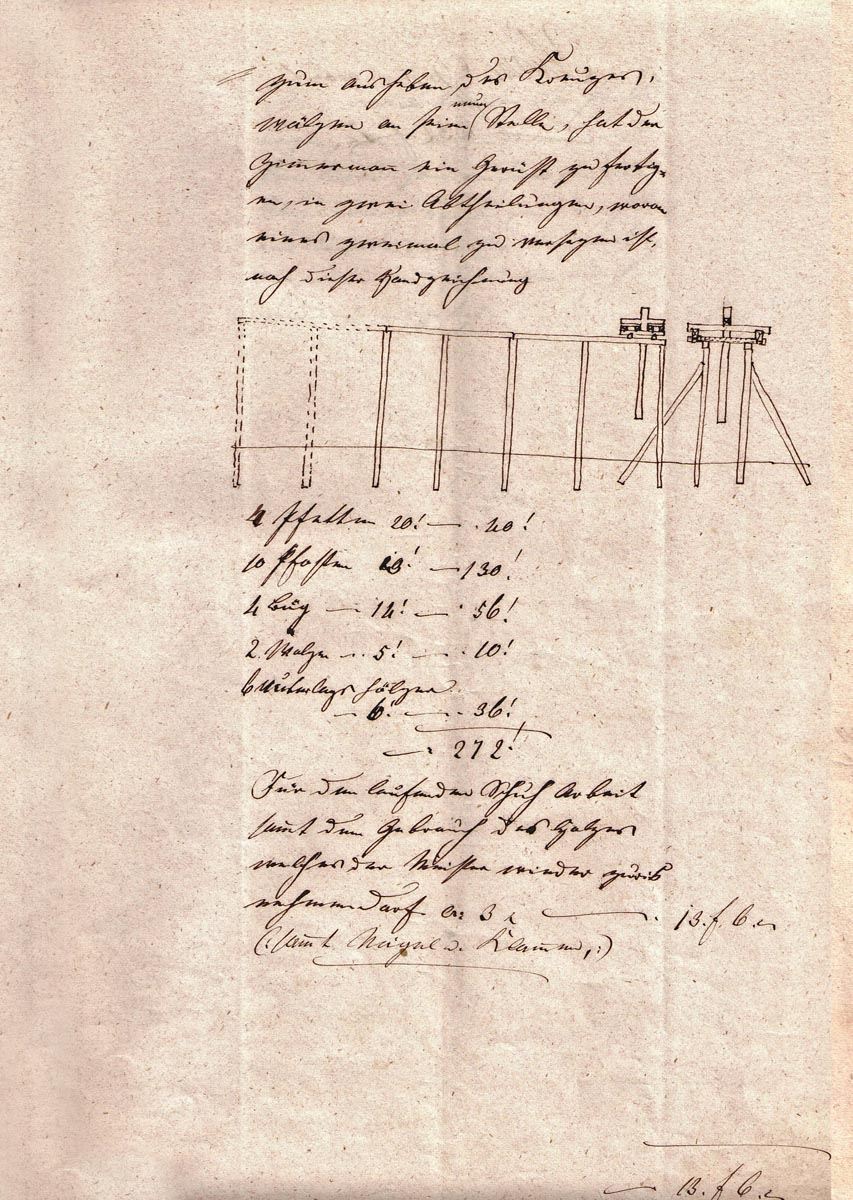 Zum ausheben des Kreuzes,
Wälzen an seine neue Stelle, hat der
Zimmermann ein Gerüst zu fertig-
en, in zwei Abtheilungen, wovon
eines zweimal zu versezen ist,
nach dieser Handzeichnung
4 Pfetten 20! — 40!
10 Pfosten 13! — 130!
4 Büg — 14! — 56!
2. Walzen — 5! — 10!
6 Unterlags hölzer
— 6! — 36!
— 272!
Für den laufenden Schuh Arbeit
samt dem Gebrauch des Holzes
welches der Meister wieder zurük
nehmen darf a: 3 x — 13. f. 6. x
(: samt Nägel u. Klamern, :)
— 13. f. 6. x